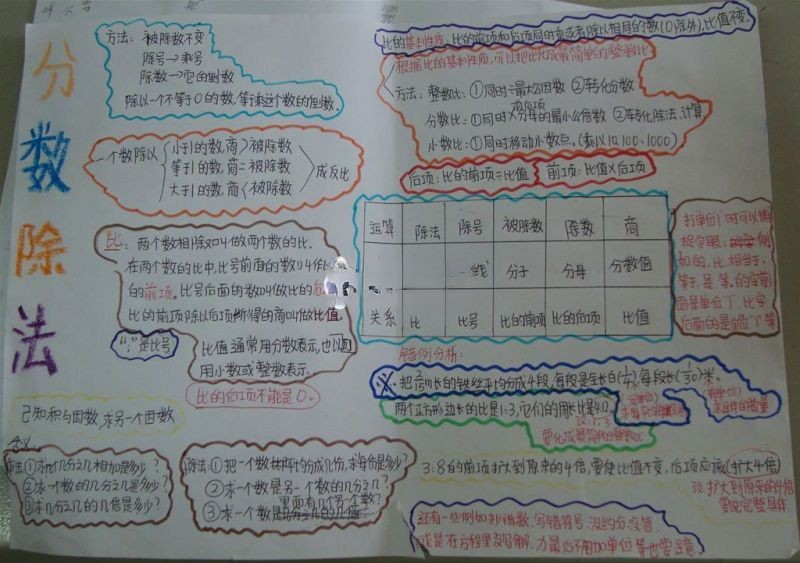 分数除法
方法：被除数不变
除号→乘号
除数→它的倒数
除以一个不等于0的数，等于乘这个数的倒数。
一个数除以
小于1的数，商>被除数
等于1的数，商=被除数
大于1的数，商<被除数
成反比
比：两个数相除又叫做两个数的比.
在两个数的比中，比号前面的数叫做比
的前项。比号后面的数叫做比的后
比的前项除以后项所得的商叫做比值.
“:”是比号
比值通常用分数表示，也可以
用小数或整数表示.
比的后项不能是0。
已知积与因数，求另一个因数
含义
乘法①求几个几分之几相加是多少？
②求一个数的几分之几是多少？
③求几分之几的几倍是多少？
除法：①把一个数平均分成几份，求每份是多少？
②求一个数是另一个数的几分之几？
里面有几个另一个数？
③求一个数是几分之几的几倍
比的基本性质：比的前项和后项同时乘或者除以相同的数(0除外)，比值不变.
根据比的基本性质，可以把比化成最简单的整数比
方法：整数比：①同时÷最大公因数 ②转化分数
分数比：①同时×分母的最小公倍数 ②转化除法，计算
小数比：①同时移动小数点。(乘以10、100、1000)
后项：比的前项÷比值
前项：比值×后项
运算 除法 除号 被除数 除数 商
线 分子 分母 分数值
关系 比 比号 比的前项 比的后项 比值
找单位1时可以
捉字眼：例
如的、比、相当于、
等于、是、等。的字前
面是单位“1”，比字
后面的是单位“1”等
错例分析：
把 m长的铁丝平均分成4段，每段是全长的(1/4)，每段长(1/30)米.
两个正方形边长的比是1:3，它们的周长比是4:12.
设:1:3
要化成最简单的整数比
3:8的前项扩大到原来的4倍，要使比值不变，后项应该(扩大4倍)
设：扩大到原来的4倍
要说完整具体
还有一些例如抄错数、写错符号、没约分、没答
或是在方程里没写解、最后不用加单位等也要注意.